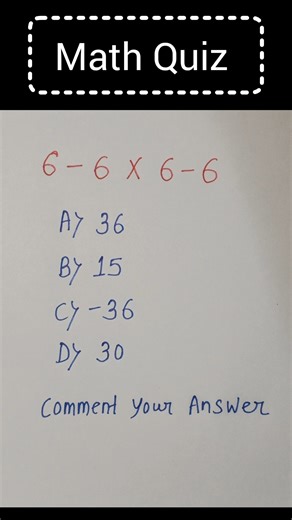 Math Quiz
6 - 6 X 6 - 6
A) 36
B) 15
C) -36
D) 30
Comment Your Answer